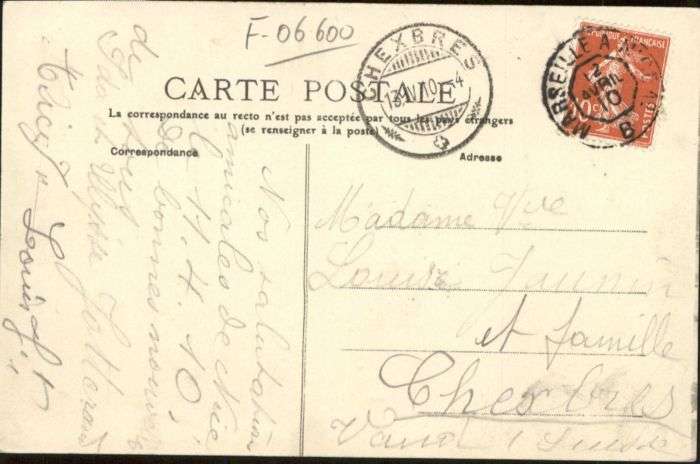 F-06600
CHEXBRES
13.IV.10.-4
RÉPUBLIQUE FRANÇAISE
MARSEILLE A
AVRIL
10
POSTES
CARTE POSTALE
La correspondance au recto n'est pas acceptée par tous les pays étrangers
(se renseigner à la poste)
Correspondance
Adresse
Nos salutations
amicales de Nice
le 11.4.10,
De bonnes nouvelles
de tous
Louis
Madame Vve
Louise Jaunin
et famille
Chexbres
Vaud Suisse